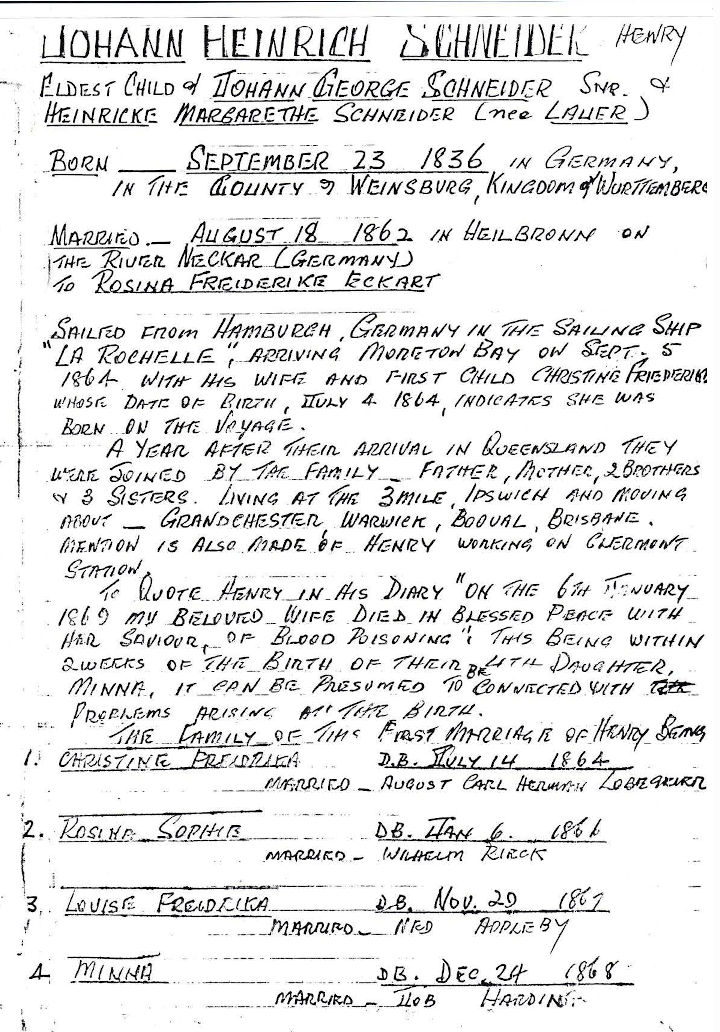 JOHANN HEINRICH SCHNEIDER HENRY
ELDEST CHILD of JOHANN GEORGE SCHNEIDER SNR. &
HEINRICKE MARGARETHE SCHNEIDER (nee LAUER)
BORN ___ SEPTEMBER 23 1836 IN GERMANY,
IN THE COUNTY of WEINSBURG, KINGDOM of WURTTEMBERG
MARRIED _ AUGUST 18 1862 IN HEILBRONN ON
THE RIVER NECKAR (GERMANY)
TO ROSINA FREIDERIKE ECKART
SAILED FROM HAMBURGH, GERMANY IN THE SAILING SHIP
"LA ROCHELLE", ARRIVING MORETON BAY ON SEPT. 5
1864 WITH HIS WIFE AND FIRST CHILD CHRISTINE FRIEDERIKE
WHOSE DATE OF BIRTH, JULY 4 1864, INDICATES SHE WAS
BORN ON THE VOYAGE.
A YEAR AFTER THEIR ARRIVAL IN QUEENSLAND THEY
WERE JOINED BY THE FAMILY _ FATHER, MOTHER, 2 BROTHERS
& 3 SISTERS. LIVING AT THE 3 MILE, IPSWICH AND MOVING
ABOUT _ GRANDCHESTER, WARWICK, BOOVAL, BRISBANE.
MENTION IS ALSO MADE OF HENRY WORKING ON CLERMONT
STATION.
TO QUOTE HENRY IN HIS DIARY "ON THE 6TH JANUARY
1869 MY BELOVED WIFE DIED IN BLESSED PEACE WITH
HER SAVIOUR, OF BLOOD POISONING"; THIS BEING WITHIN
2 WEEKS OF THE BIRTH OF THEIR 4TH DAUGHTER,
MINNA, IT CAN BE PRESUMED TO BE CONNECTED WITH
PROBLEMS ARISING AT THE BIRTH.
THE FAMILY OF THIS FIRST MARRIAGE OF HENRY BEING
1. CHRISTINE FREIDRIKA D.B. JULY 14 1864
MARRIED _ AUGUST CARL HERMAN
2. ROSINA SOPHIE DB. JAN 6. 1866
MARRIED _ WILHELM RIECK
3. LOUISE FREIDRIKA D.B. NOV. 29 1867
MARRIED _ NED APPLEBY
4. MINNA DB. DEC. 24 1868
MARRIED _ JOB HARDING